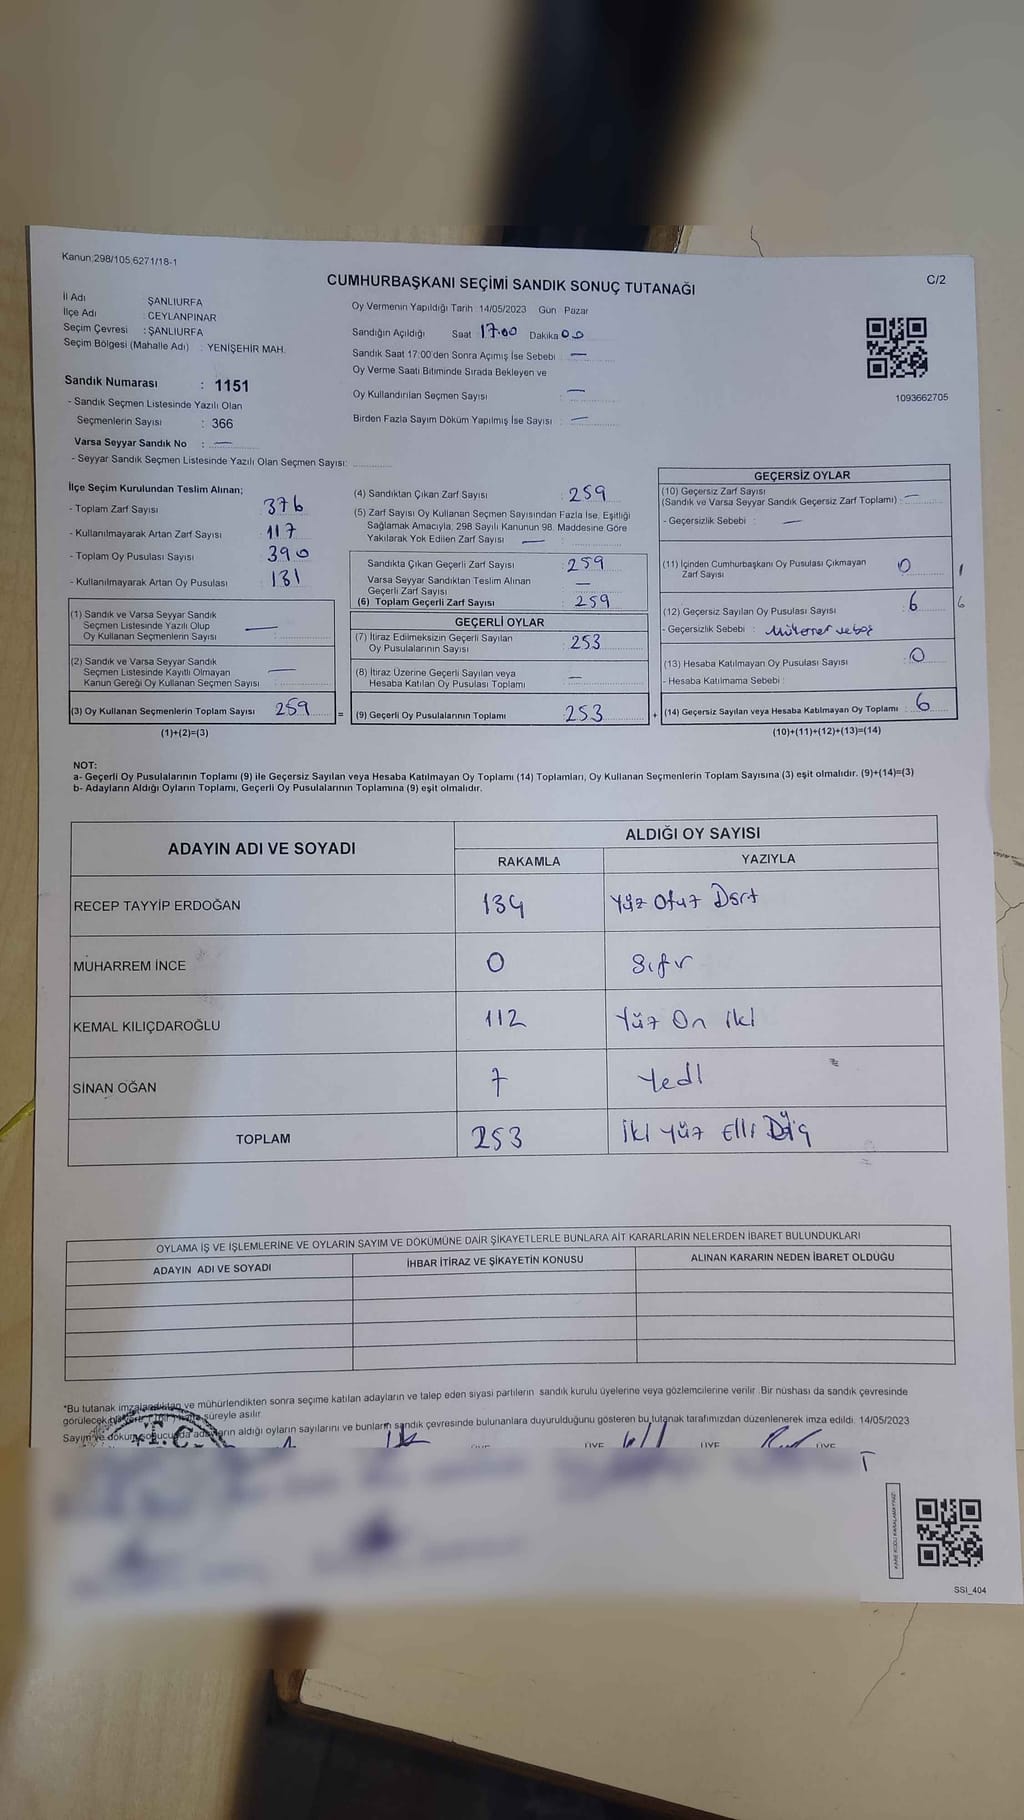 Kanun;298/105,6271/18-1
CUMHURBAŞKANI SEÇİMİ SANDIK SONUÇ TUTANAĞI
C/2
İl Adı : ŞANLIURFA
İlçe Adı : CEYLANPINAR
Seçim Çevresi : ŞANLIURFA
Seçim Bölgesi (Mahalle Adı) : YENİŞEHİR MAH.
Sandık Numarası : 1151
- Sandık Seçmen Listesinde Yazılı Olan
Seçmenlerin Sayısı : 366
Varsa Seyyar Sandık No : —
- Seyyar Sandık Seçmen Listesinde Yazılı Olan Seçmen Sayısı:
Oy Vermenin Yapıldığı Tarih 14/05/2023 Gün Pazar
Sandığın Açıldığı Saat 17.00 Dakika 00
Sandık Saat 17:00'den Sonra Açımış İse Sebebi : —
Oy Verme Saati Bitiminde Sırada Bekleyen ve
Oy Kullandırılan Seçmen Sayısı : —
Birden Fazla Sayım Döküm Yapılmış İse Sayısı : —
1093662705
İlçe Seçim Kurulundan Teslim Alınan;
- Toplam Zarf Sayısı 376
- Kullanılmayarak Artan Zarf Sayısı 117
- Toplam Oy Pusulası Sayısı 390
- Kullanılmayarak Artan Oy Pusulası 131
(1) Sandık ve Varsa Seyyar Sandık
Seçmen Listesinde Yazılı Olup
Oy Kullanan Seçmenlerin Sayısı : —
(2) Sandık ve Varsa Seyyar Sandık
Seçmen Listesinde Kayıtlı Olmayan
Kanun Gereği Oy Kullanan Seçmen Sayısı : —
(3) Oy Kullanan Seçmenlerin Toplam Sayısı 259 =
(1)+(2)=(3)
(4) Sandıktan Çıkan Zarf Sayısı : 259
(5) Zarf Sayısı Oy Kullanan Seçmen Sayısından Fazla İse, Eşitliği
Sağlamak Amacıyla, 298 Sayılı Kanunun 98. Maddesine Göre
Yakılarak Yok Edilen Zarf Sayısı — :
Sandıkta Çıkan Geçerli Zarf Sayısı : 259
Varsa Seyyar Sandıktan Teslim Alınan
Geçerli Zarf Sayısı : —
(6) Toplam Geçerli Zarf Sayısı : 259
GEÇERLİ OYLAR
(7) İtiraz Edilmeksizin Geçerli Sayılan
Oy Pusulalarının Sayısı : 253
(8) İtiraz Üzerine Geçerli Sayılan veya
Hesaba Katılan Oy Pusulası Toplamı : —
(9) Geçerli Oy Pusulalarının Toplamı : 253 +
GEÇERSİZ OYLAR
(10) Geçersiz Zarf Sayısı
(Sandık ve Varsa Seyyar Sandık Geçersiz Zarf Toplamı) : —
- Geçersizlik Sebebi : —
(11) İçinden Cumhurbaşkanı Oy Pusulası Çıkmayan
Zarf Sayısı : 0
(12) Geçersiz Sayılan Oy Pusulası Sayısı : 6 6
- Geçersizlik Sebebi :
(13) Hesaba Katılmayan Oy Pusulası Sayısı : 0
- Hesaba Katılmama Sebebi :
(14) Geçersiz Sayılan veya Hesaba Katılmayan Oy Toplamı : 6
(10)+(11)+(12)+(13)=(14)
NOT:
a- Geçerli Oy Pusulalarının Toplamı (9) ile Geçersiz Sayılan veya Hesaba Katılmayan Oy Toplamı (14) Toplamları, Oy Kullanan Seçmenlerin Toplam Sayısına (3) eşit olmalıdır. (9)+(14)=(3)
b- Adayların Aldığı Oyların Toplamı, Geçerli Oy Pusulalarının Toplamına (9) eşit olmalıdır.
ADAYIN ADI VE SOYADI ALDIĞI OY SAYISI
RAKAMLA YAZIYLA
RECEP TAYYİP ERDOĞAN 134 Yüz Otuz Dört
MUHARREM İNCE 0 Sıfır
KEMAL KILIÇDAROĞLU 112 Yüz On iki
SİNAN OĞAN 7 Yedi
TOPLAM 253 İki Yüz Elli
OYLAMA İŞ VE İŞLEMLERİNE VE OYLARIN SAYIM VE DÖKÜMÜNE DAİR ŞİKAYETLERLE BUNLARA AİT KARARLARIN NELERDEN İBARET BULUNDUKLARI
ADAYIN ADI VE SOYADI İHBAR İTİRAZ VE ŞİKAYETİN KONUSU ALINAN KARARIN NEDEN İBARET OLDUĞU
*Bu tutanak imzalandıktan ve mühürlendikten sonra seçime katılan adayların ve talep eden siyasi partilerin sandık kurulu üyelerine veya gözlemcilerine verilir .Bir nüshası da sandık çevresinde
görülecek süreyle asılır.
Sayım ve döküm sonucunda adayların aldığı oyların sayılarını ve bunların sandık çevresinde bulunanlara duyurulduğunu gösteren bu tutanak tarafımızdan düzenlenerek imza edildi. 14/05/2023
T.C.
ÜYE ÜYE ÜYE ÜYE
SSI_404